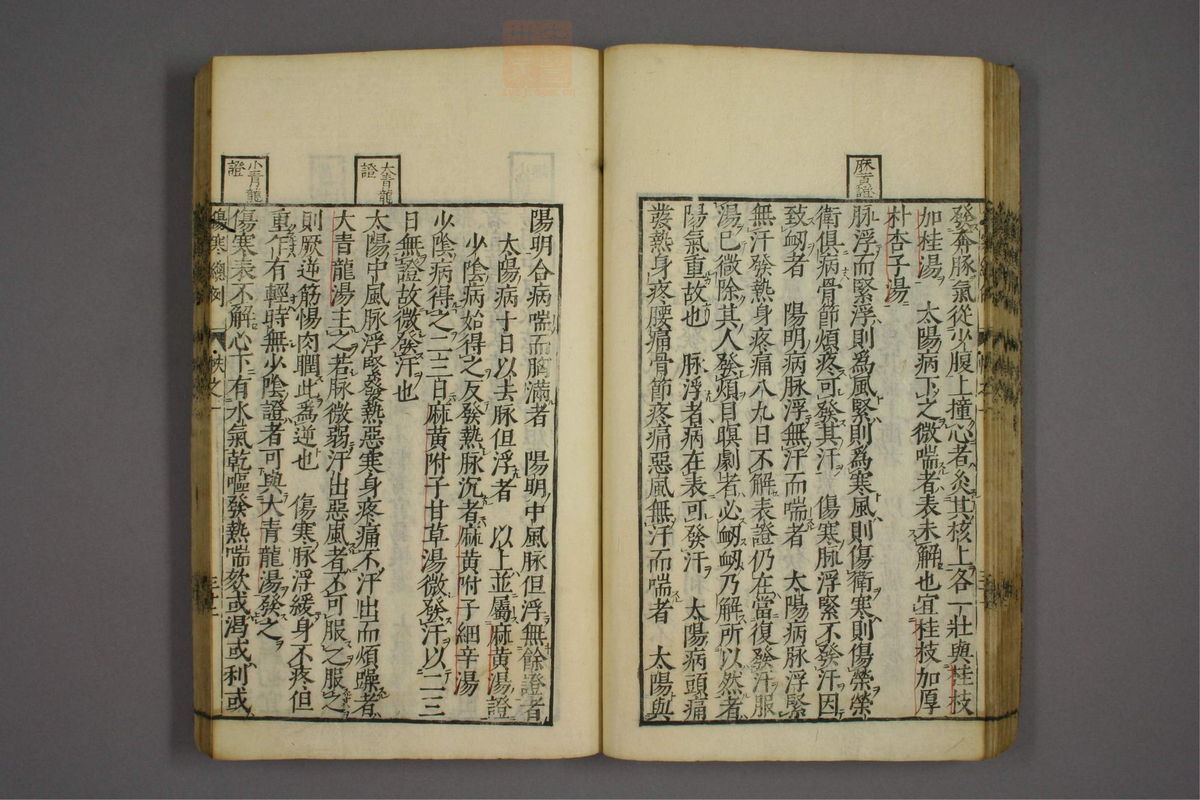 麻黄證
發奔豚氣從少腹上撞心者灸其核上各一壯與桂枝
加桂湯　太陽病下之微喘者表未解也宜桂枝加厚
朴杏子湯
脉浮而緊浮則爲風緊則爲寒風則傷衛寒則傷榮榮
衛俱病骨節煩疼可發其汗　傷寒脉浮緊不發汗因
致衂者　陽明病脉浮無汗而喘者　太陽病脉浮緊
無汗發熱身疼痛八九日不解表證仍在當復發汗服
湯已微除其人發煩目瞑劇者必衂衂乃解所以然者
陽氣重故也　脉浮者病在表可發汗　太陽病頭痛
發熱身疼腰痛骨節疼痛惡風無汗而喘者　太陽與
陽明合病喘而胸滿者　陽明中風脉但浮無餘證者
太陽病十日以去脉但浮者　以上並屬麻黄湯證
少陰病始得之反發熱脉沉者麻黄附子細辛湯
少陰病得之二三日麻黄附子甘草湯微發汗以二三
日無證故微發汗也
大青龍
證
太陽中風脉浮緊發熱惡寒身疼痛不汗出而煩躁者
大青龍湯主之若脉微弱汗出惡風者不可服之服之
則厥逆筋惕肉瞤此爲逆也　傷寒脉浮緩身不疼但
重乍有輕時無少陰證者可與大青龍湯發之
小青龍
證
傷寒表不解心下有水氣乾嘔發熱喘欬或渴或利或
傷寒總例
帙之一
三十一